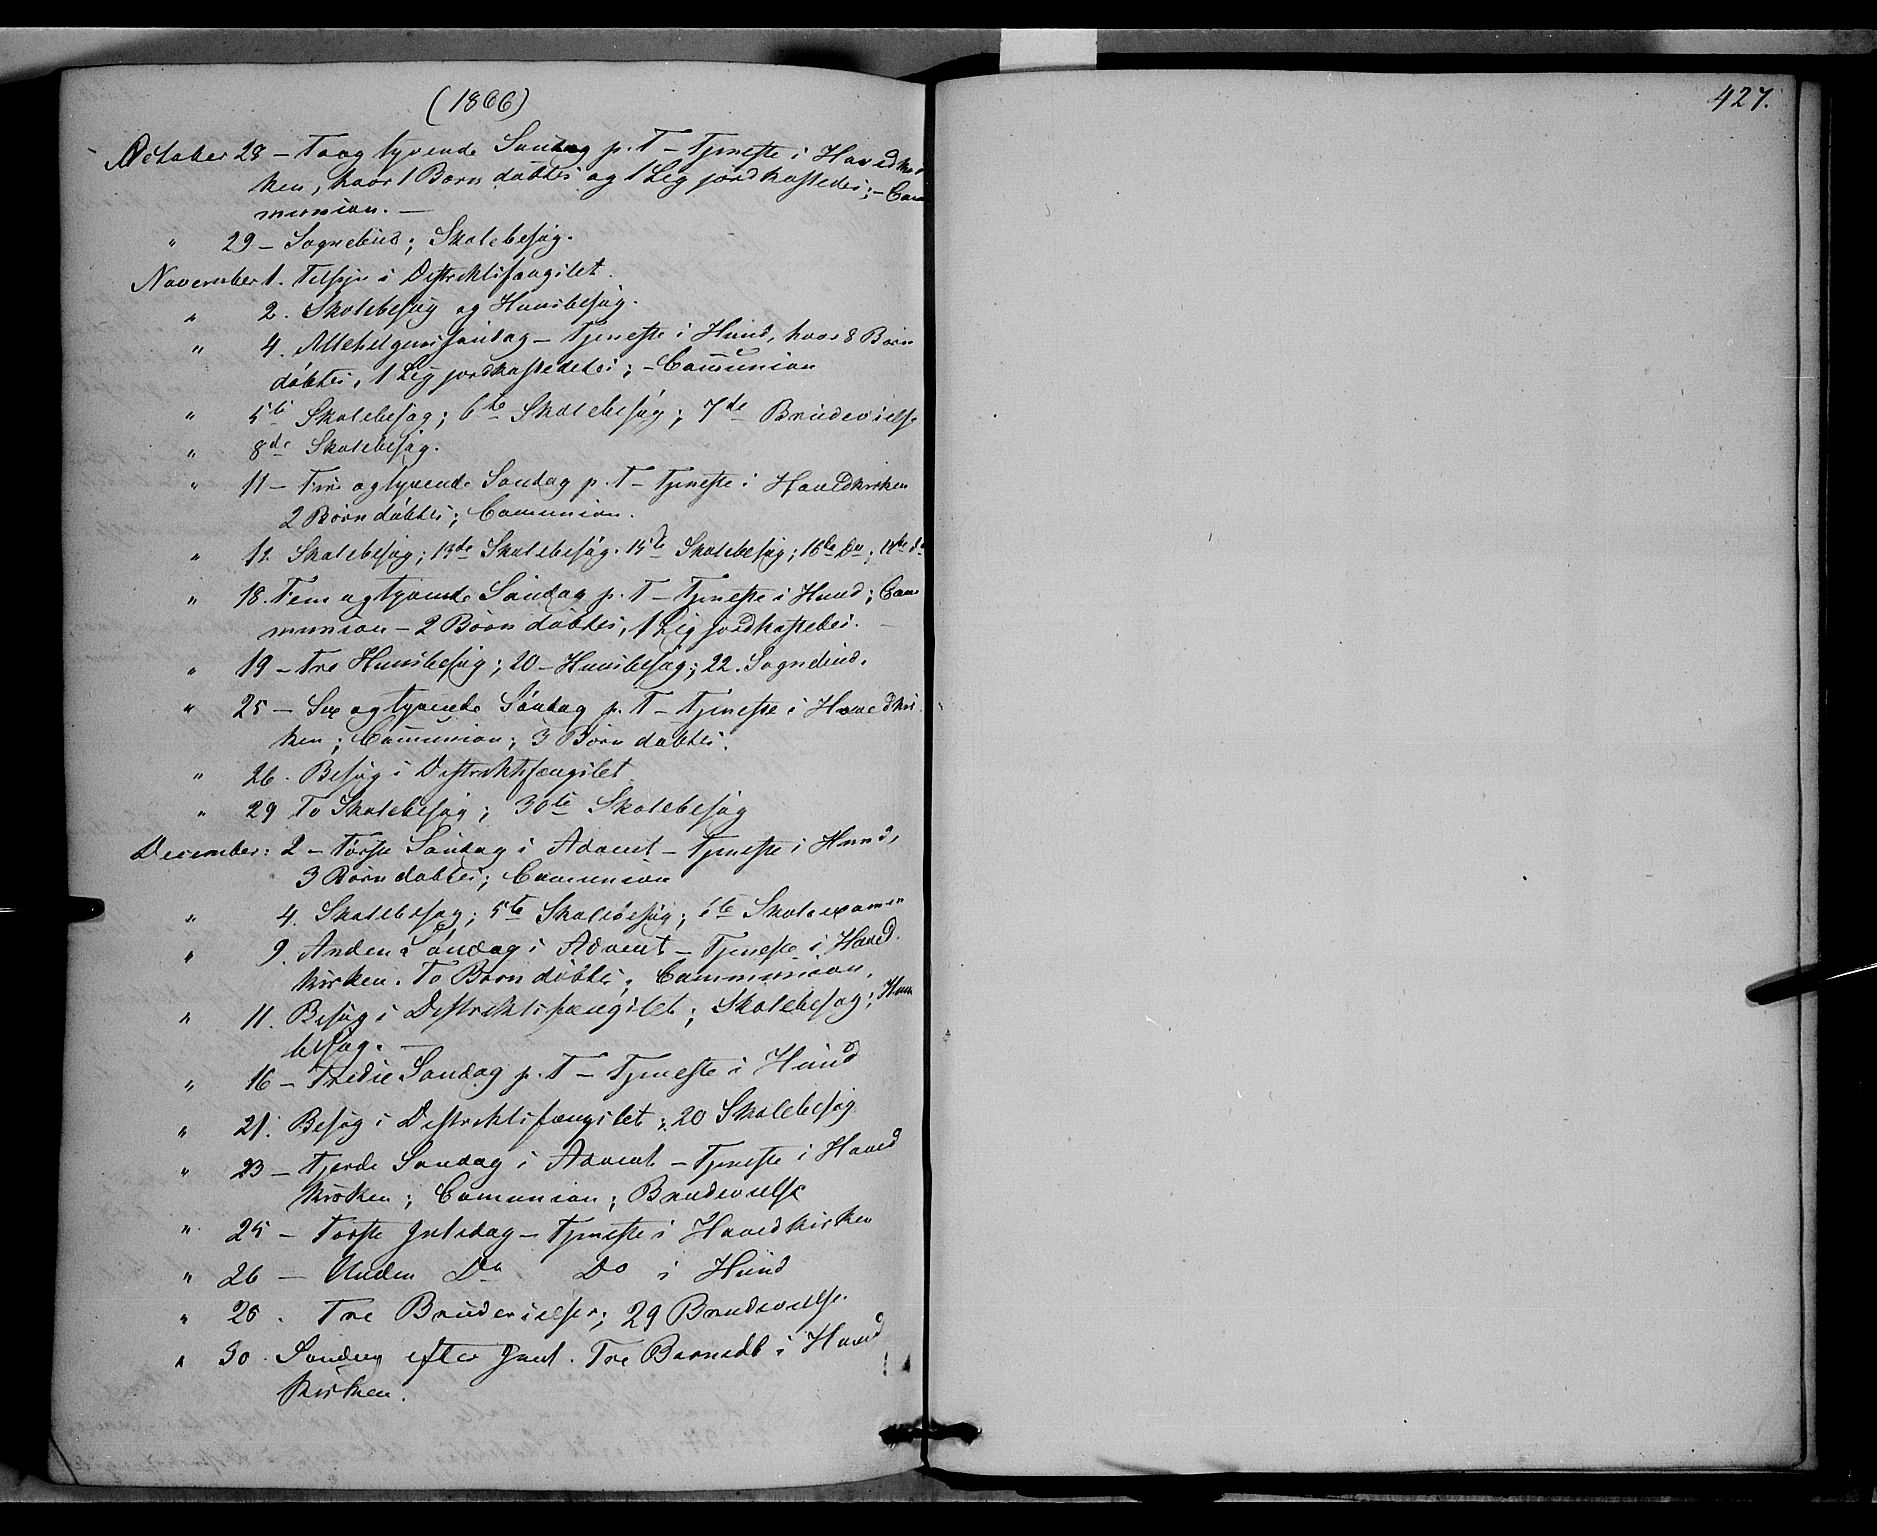 (1866)
October 28 – Toogtyvende Søndag p. T – Tjeneste i Hovedkir
ken, hvor 1 Barn døbtes og 1 Lig jordkastedes; – Com
munion. –
" 29 – Sognebud; Skolebesøg.
November 1. Tilsyn i Distriktsfængslet.
" 2. Skolebesøg og Huusbesøg.
" 4. Allehelgenssøndag – Tjeneste i Hund, hvor 8 Børn
døbtes, 1 Lig jordkastedes; – Communion
" 5te Skolebesøg; 6te Skolebesøg; 7de Brudevielse
" 8de Skolebesøg.
" 11 – Treogtyvende Søndag p. T – Tjeneste i Hovedkirken
2 Børn døbtes; Communion.
" 12. Skolebesøg; 13de Skolebesøg. 15de Skolebesøg; 16de Do;
" 18. Femogtyvende Søndag p. T – Tjeneste i Hund; Com
munion – 2 Børn døbtes, 1 Lig jordkastedes. –
" 19 – Tre Huusbesøg; 20 – Huusbesøg; 22. Sognebud.
" 25 – Sexogtyvende Søndag p. T – Tjeneste i Hovedkir
ken; Communion; 3 Børn døbtes.
" 26. Besøg i Distriktsfængslet
" 29 To Skolebesøg; 30te Skolebesøg
December: 2 – Første Søndag i Advent – Tjeneste i Hund,
3 Børn døbtes; Communion
" 4. Skolebesøg; 5te Skolebesøg; 6te Skoleexamen
" 9. Anden Søndag i Advent – Tjeneste i Hoved
kirken. To Børn døbtes; Communion.
" 11. Besøg i Distriktsfængslet; Skolebesøg; Huus
besøg. –
" 16 – Tredie Søndag p. T – Tjeneste i Hund
" 21. Besøg i Distriktsfængslet; 20 Skolebesøg
" 23 – Fjerde Søndag i Advent – Tjeneste i Hoved
kirken; Communion; Brudevielse
" 25 – Første Juledag – Tjeneste i Hovedkirken
" 26 – Anden Do Do i Hund
" 28. Tre Brudevielser; 29 Brudevielse.
" 30. Søndag efter Juul. Tre Barnedb i Hoved
kirken.
427.